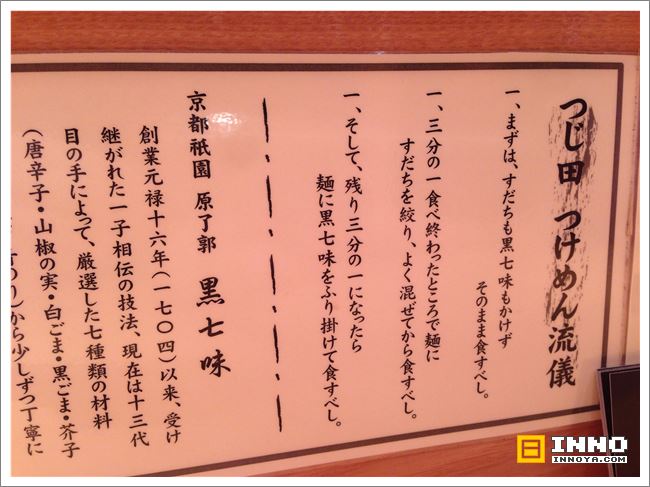 つじ田 つけめん流儀
一、まずは、すだちも黒七味もかけず
そのまま食すべし。
一、三分の一食べ終わったところで麺に
すだちを絞り、よく混ぜてから食すべし。
一、そして、残り三分の一になったら
麺に黒七味をふり掛けて食すべし。
京都祇園 原了郭 黒七味
創業元禄十六年(一七〇四)以来、受け
継がれた一子相伝の技法、現在は十三代
目の手によって、厳選した七種類の材料
(唐辛子・山椒の実・白ごま・黒ごま・芥子
のり)から少しずつ丁寧に
INNO
INNOYA.COM